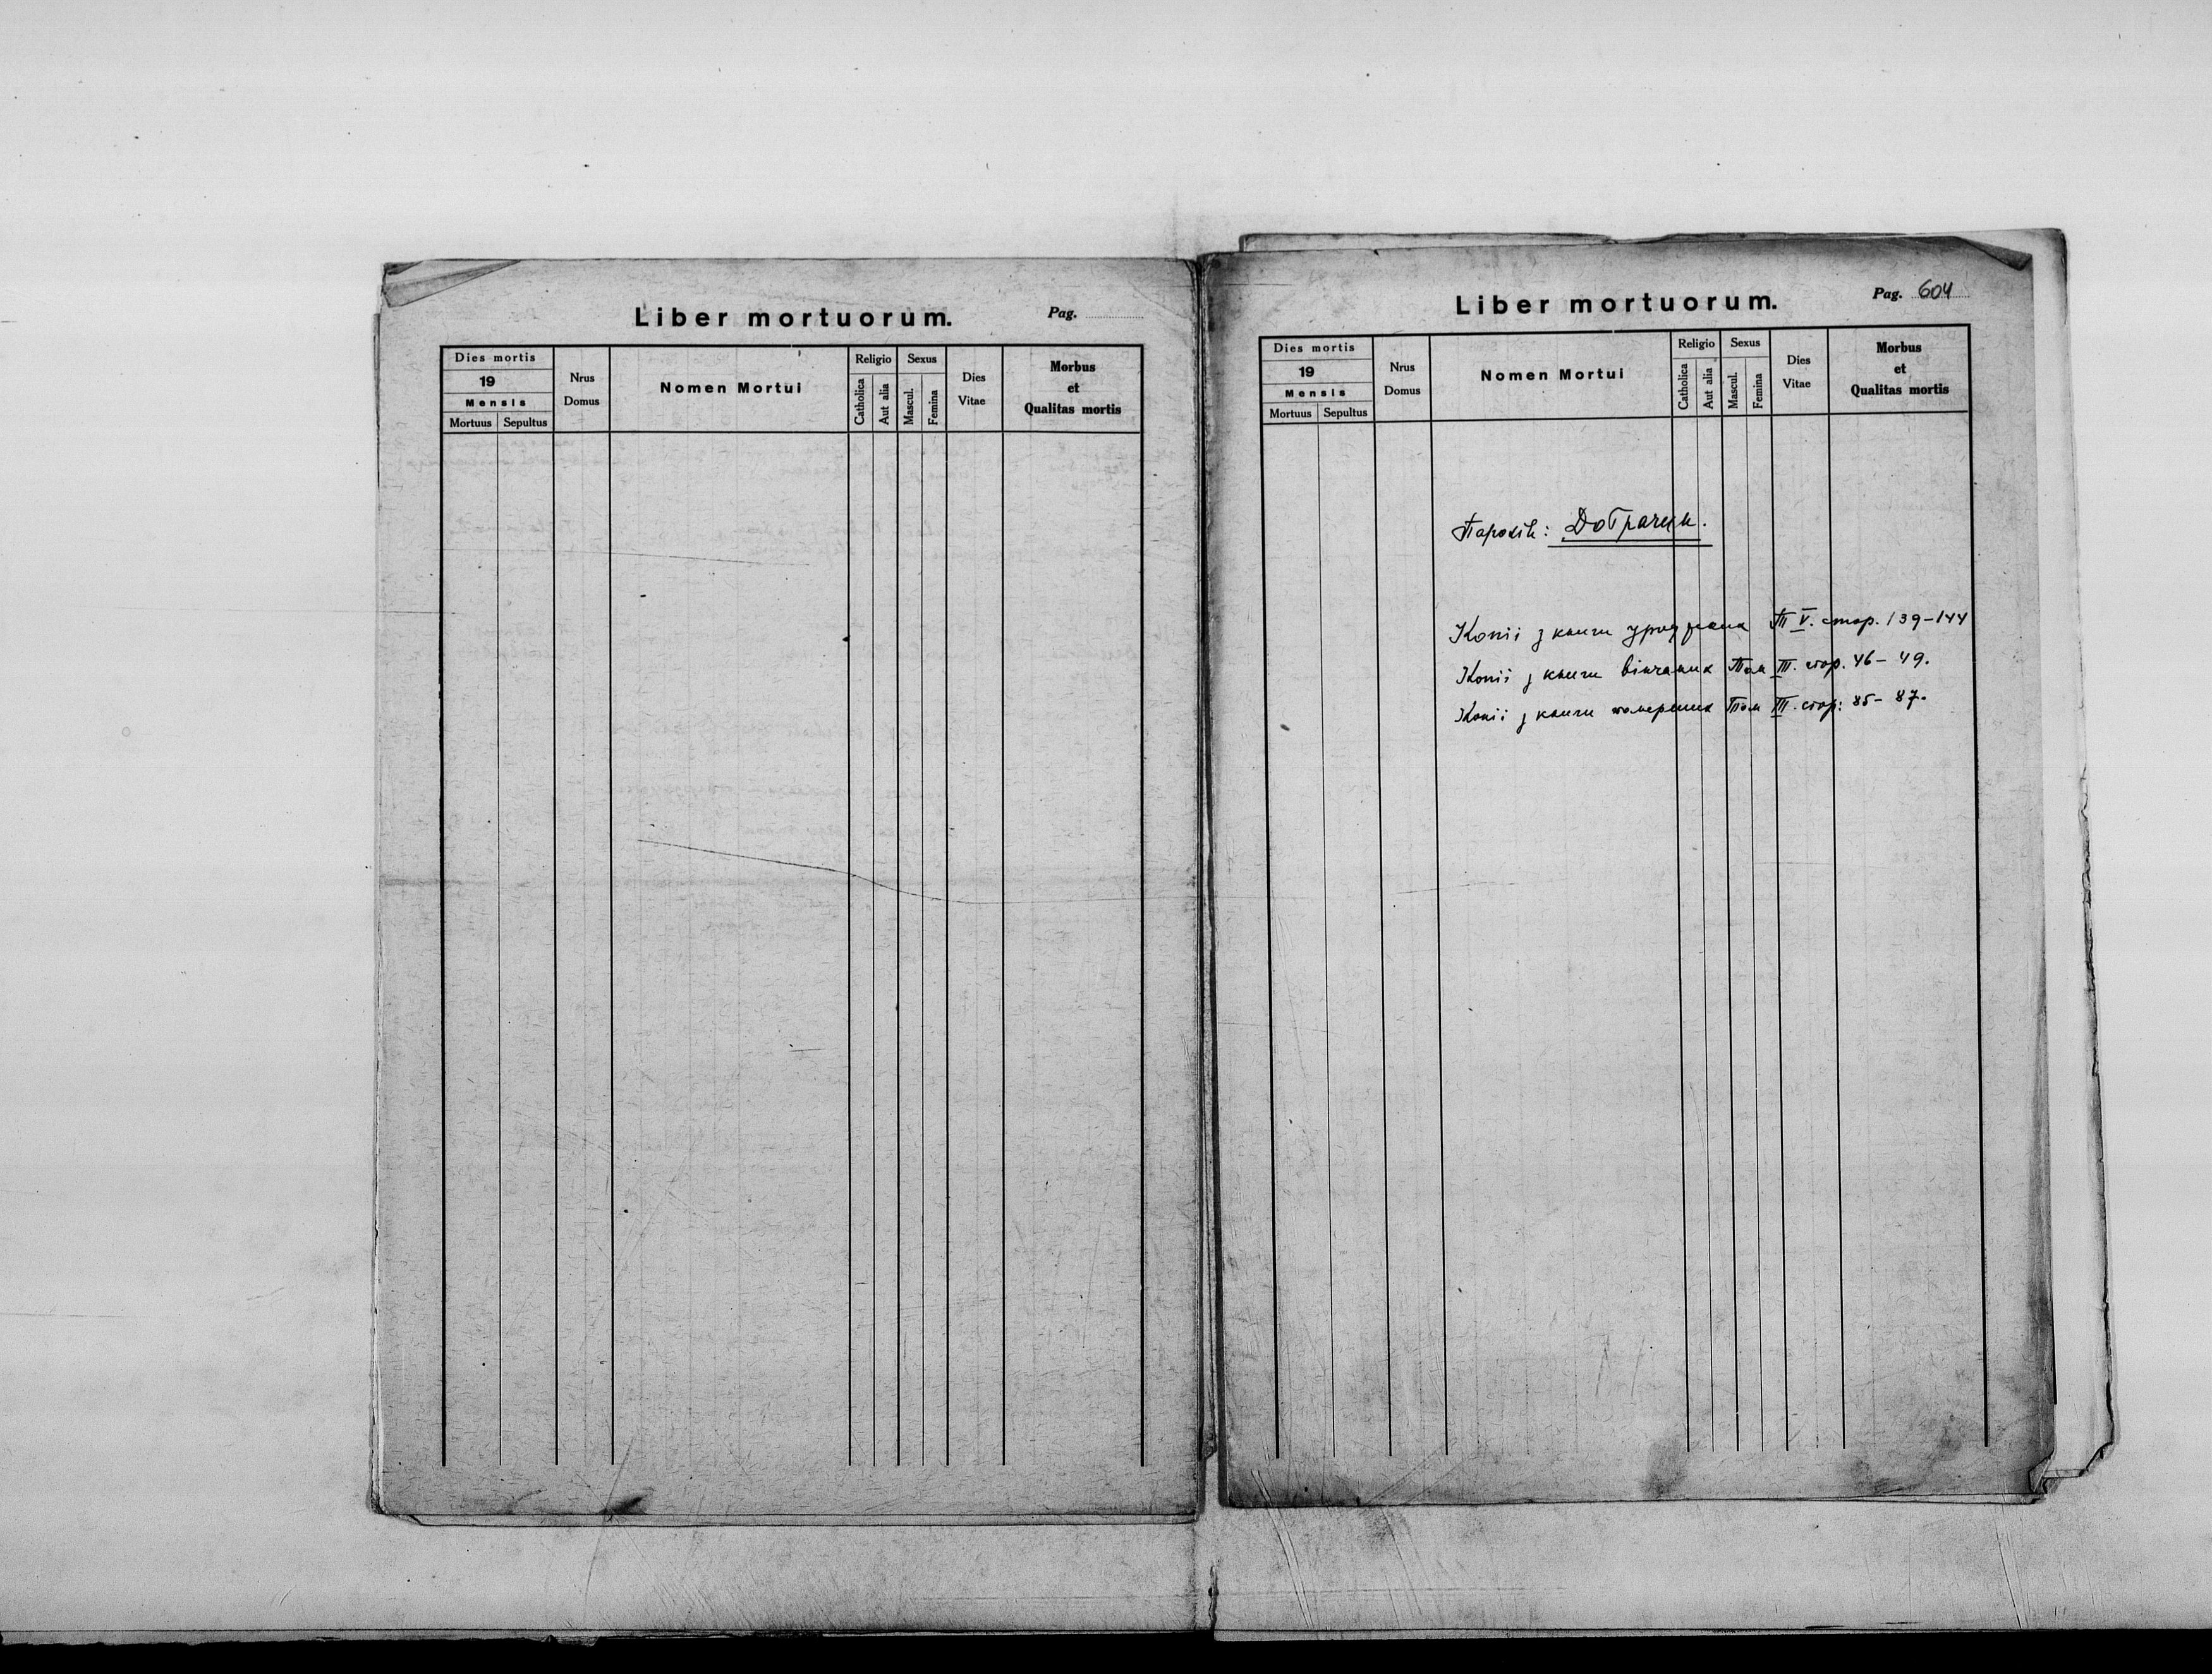 Liber mortuorum.
Pag.
Dies mortis
19
Mensis
Mortuus Sepultus
Nrus
Domus
Nomen Mortui
Religio
Catholica
Aut alia
Sexus
Mascul.
Femina
Dies
Vitae
Morbus
et
Qualitas mortis
Liber mortuorum.
Pag. 604
Dies mortis
19
Mensis
Mortuus Sepultus
Nrus
Domus
Nomen Mortui
Religio
Catholica
Aut alia
Sexus
Mascul.
Femina
Dies
Vitae
Morbus
et
Qualitas mortis
Парохія: Добрачин.
Копії з книги уроджених Т V. стор. 139-144
Копії з книги вінчаних Том III. стор. 46-49.
Копії з книги померших Том III. стор: 85-87.